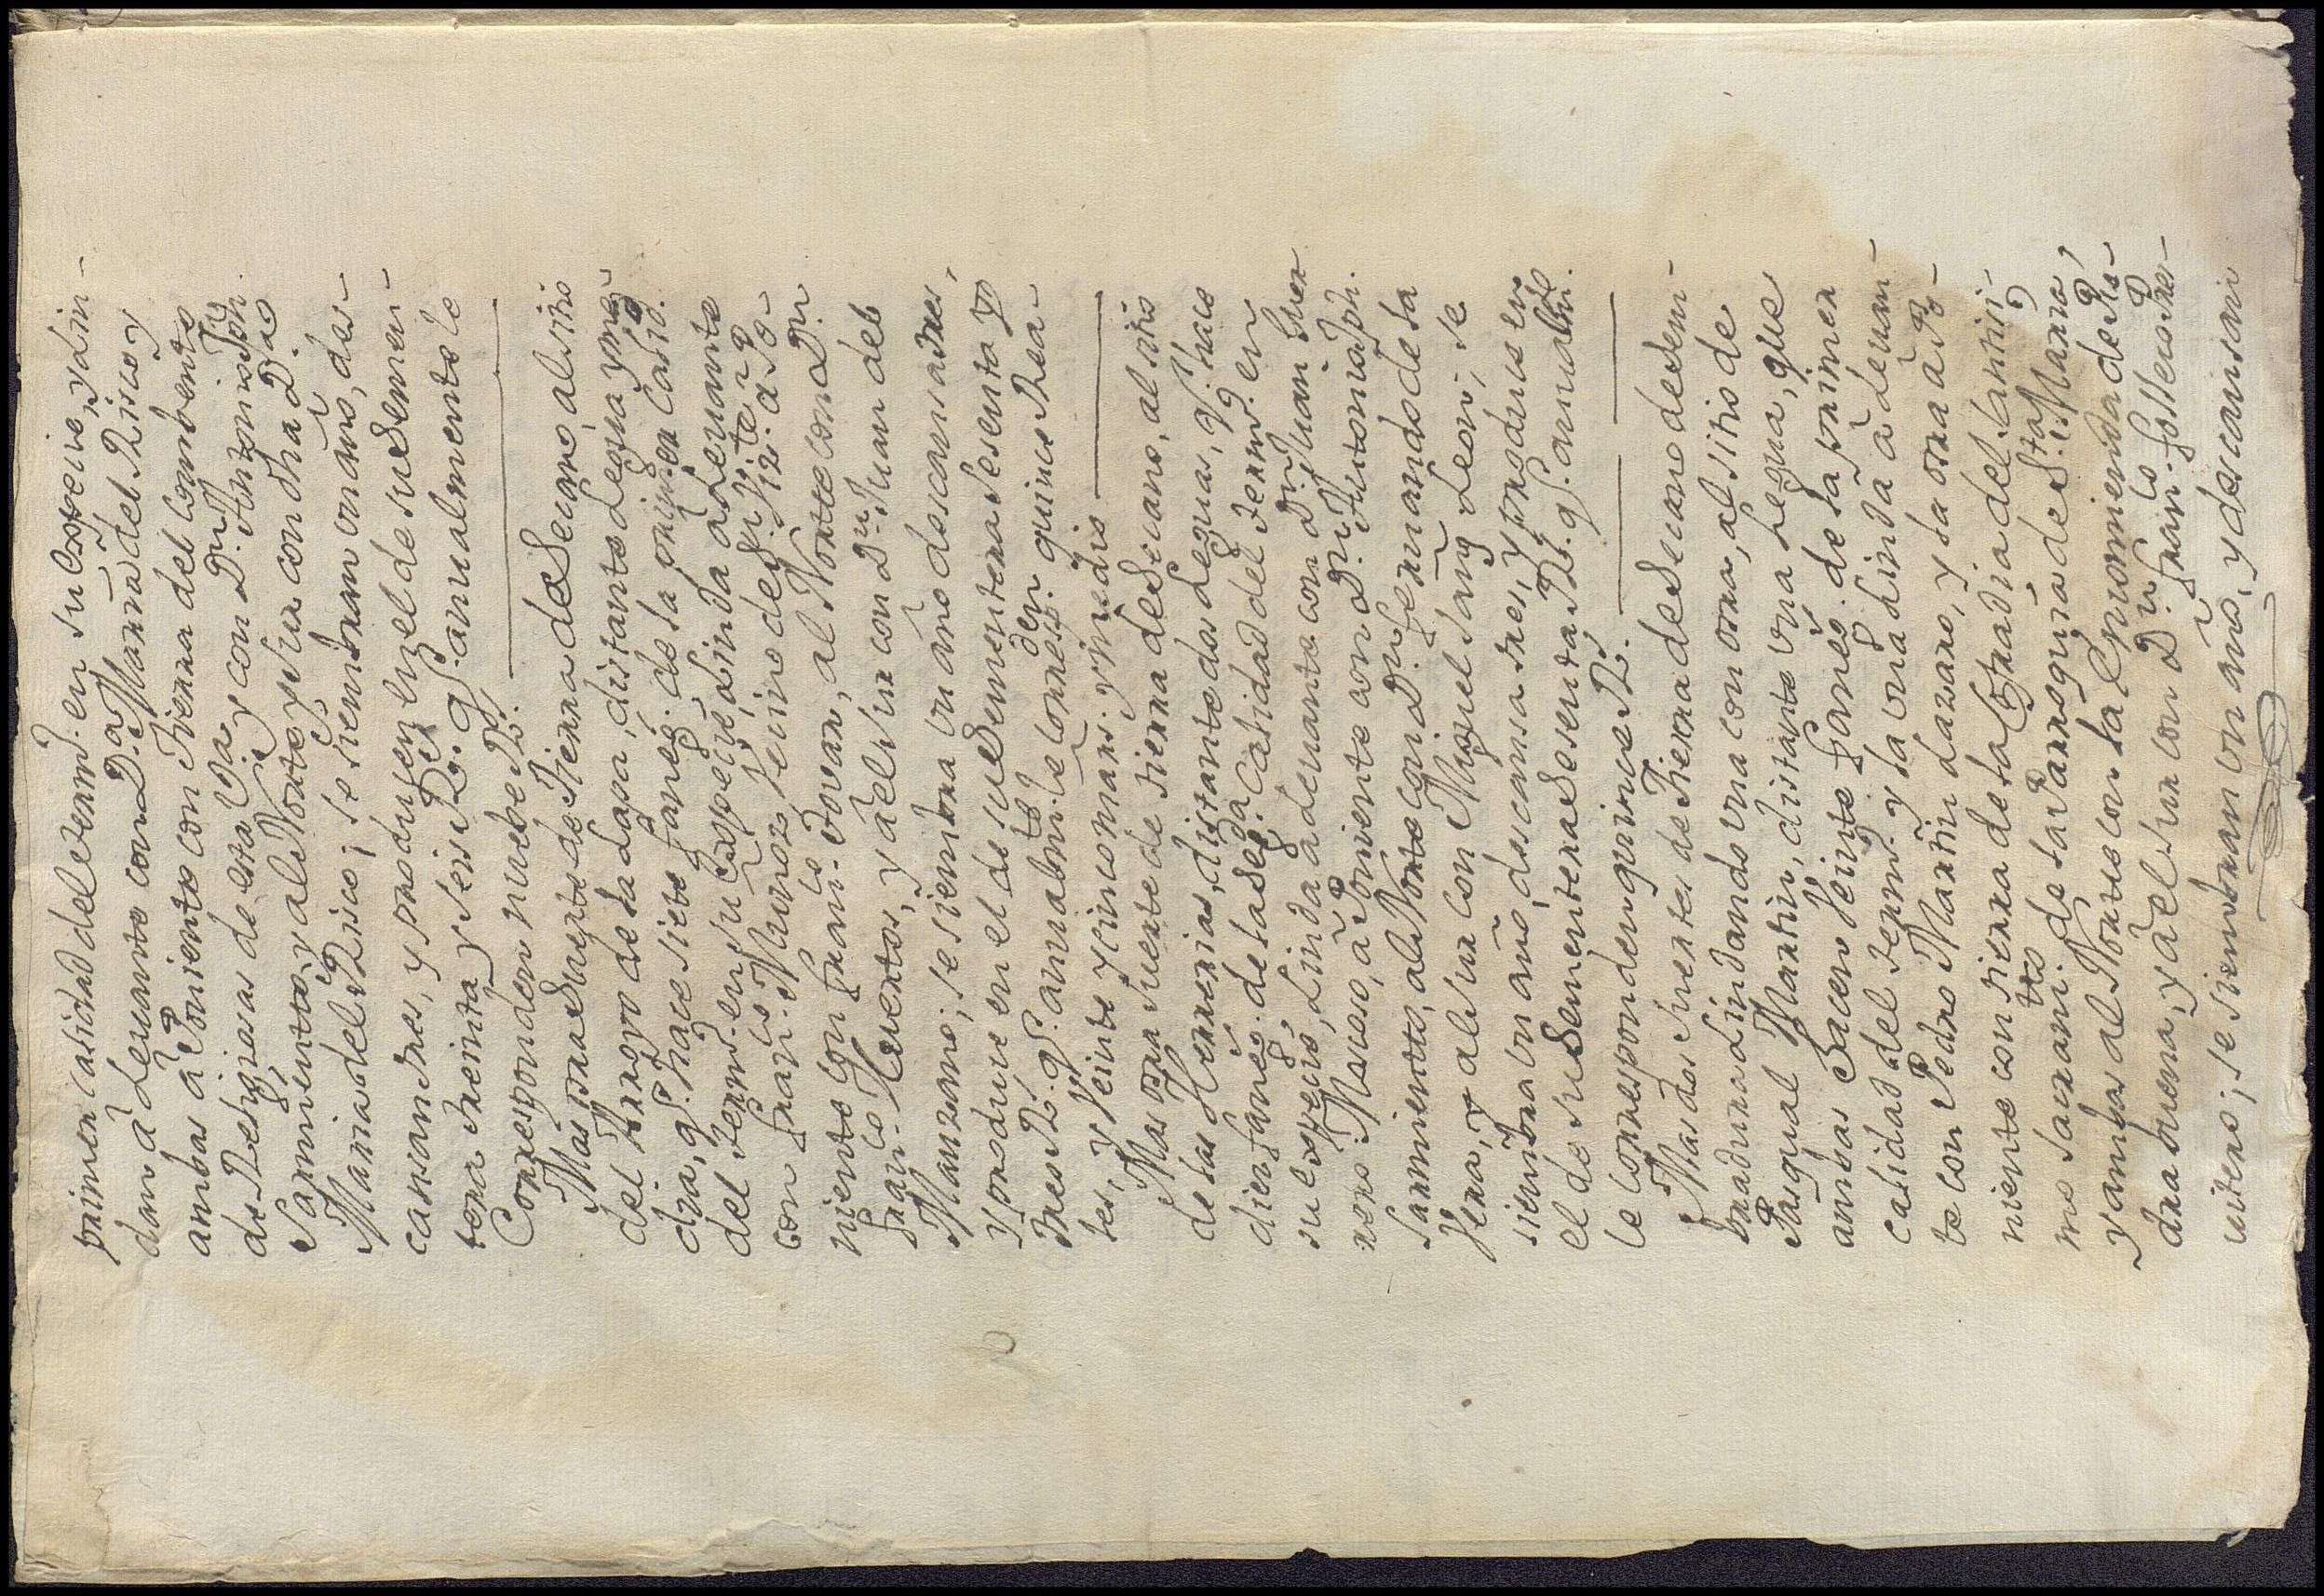 primer calidad del term.º en su espeiie, y lin-
dan â Levante con D.ª Maria del Risco y
ambas â Poniente con tierra del combento
de Religiosas de esta V.ª y con D.n Antonio Jph.
Sarmiento, y al Norte y sur con dha D.ª
Maria del Risco; se siembran un año, des-
cansan tres, y producen en el de su semen-
tera treinta y seis R.s q.e anualmente le
Corresponden nuebe R.s
Mas otra Suerte de tierra de Secano, al sitio
del Arroyo de la Lapa, distante Legua y me-
dia, q.e hace siete faneg.s de la primer Calid.d
del term.º en su espeiie, Linda â Levante
con Fran.co Munoz, vecino de Fu.te â Po-
niente con Fran.co Tovar, al Norte con D.n
Fran.co Huertos, y â el sur con D.n Juan del
Manzano; se siembra un año descansa tres,
y produce en el de su Sementera Sesenta y
tres R.s q.e annualm.te le corresp.den quince Rea-
les, y Veinte y cinco mars. y medio
Mas otra Suerte de tierra de Secano, al sitio
de las Herrerias, distante dos Leguas, q.e hace
diez faneg.s de la Seg.da Calidad del term.º en
su espeiie, Linda â Levante con D.n Juan Guer
rero Maseso, â Poniente con D.n Antonio Jph.
Sarmiento, al Norte con D.n Fernando de la
Vera, y al sur con Miguel Sanz Leon, se
siembra un año, descansa tres, y produce en
el de su Sementera Sesenta R.s q.e annualm.te
le corresponden quince R.s
Mas dos suertes de Tierra de Secano de Sem-
bradura Lindando una con otra, al sitio de
Pasqual Martin, distante una Legua, que
ambas hacen Veinte faneg.s de la primer
calidad del term.º y la una Linda â Levan-
te con Pedro Martin Lazaro, y la otra â Po-
niente con tierra de la Cofradia del santisi-
mo Sacram.to de la Parroquia de S.ta Maria,
y ambas al Norte con la Encomienda de Pie-
dra buena, y â el sur con D.n Fran.co Golleso Pres-
vitero; se siembran un año, y descansan